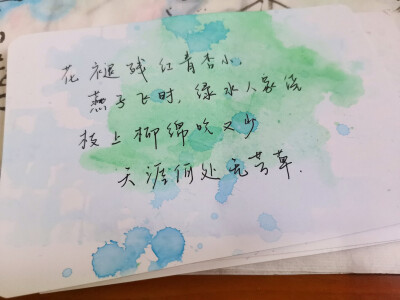 花褪残红青杏小
燕子飞时，绿水人家绕
枝上柳绵吹又少
天涯何处无芳草.